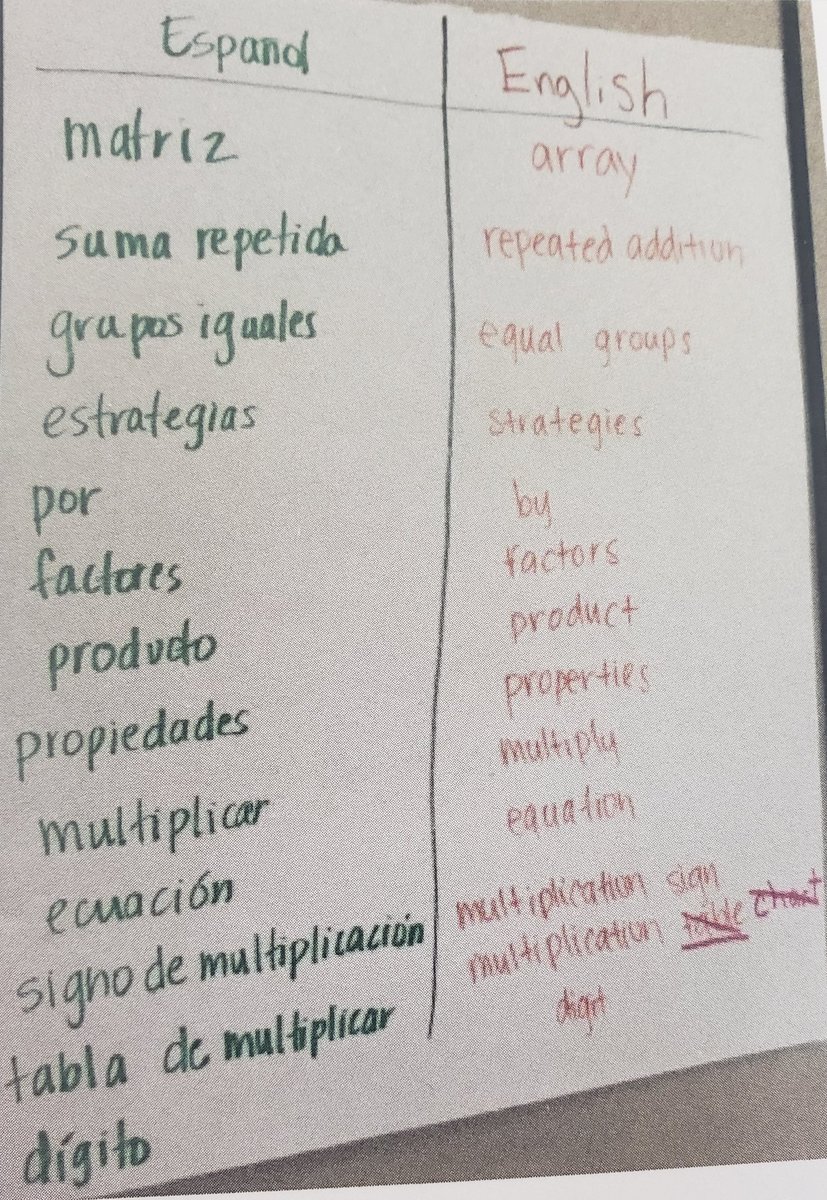 Espanol English
matriz array
suma repetida repeated addition
grupos iguales equal groups
estrategias strategies
por by
factores factors
producto product
propiedades properties
multiplicar multiply
ecuación equation
signo de multiplicación multiplication sign
tabla de multiplicar multiplication table chart
dígito digit